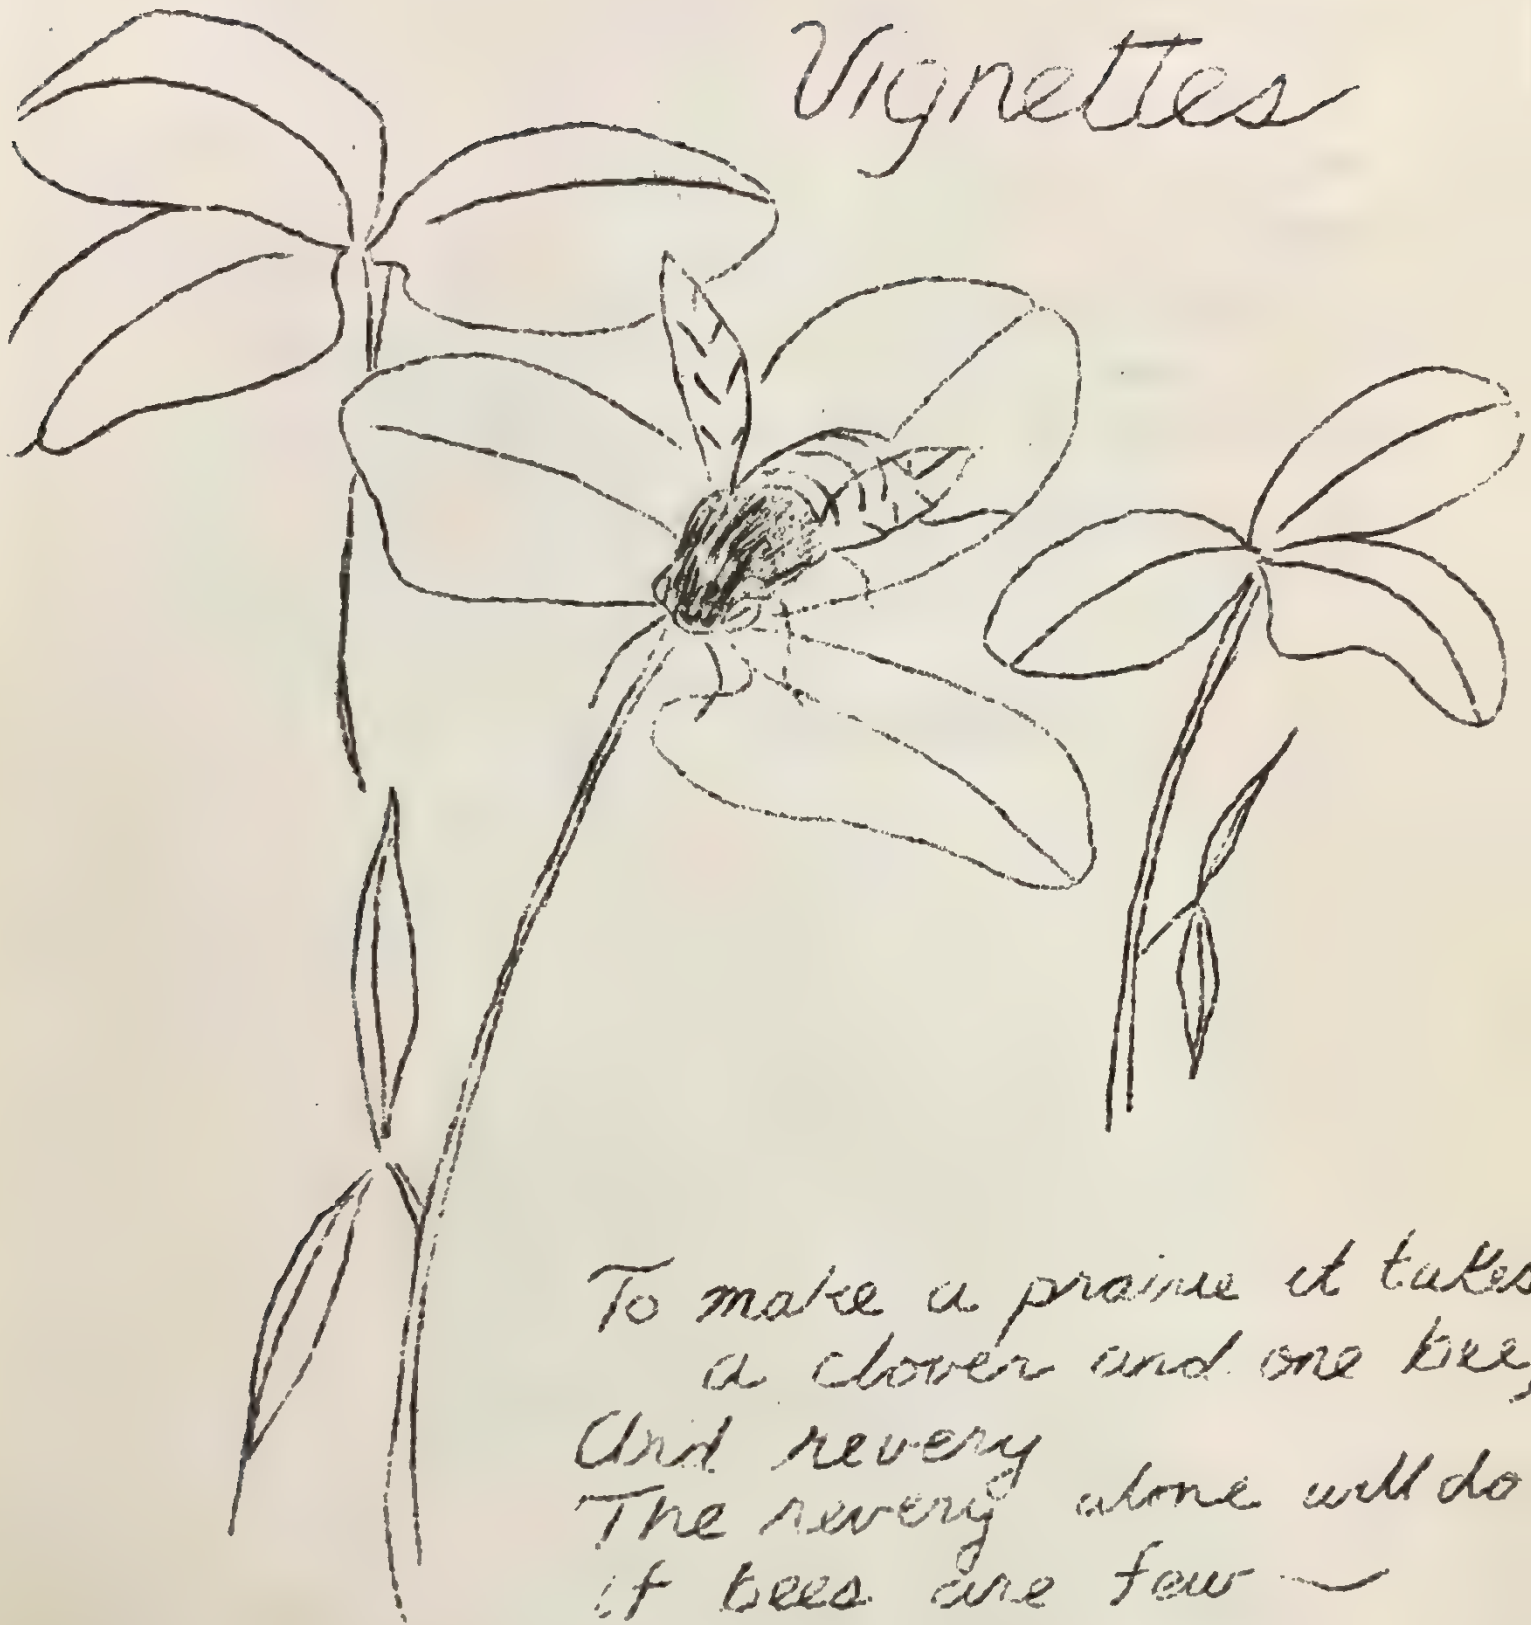 Vignettes
To make a prairie it takes
a clover and one bee,
And revery
The revery alone will do
if bees are few —